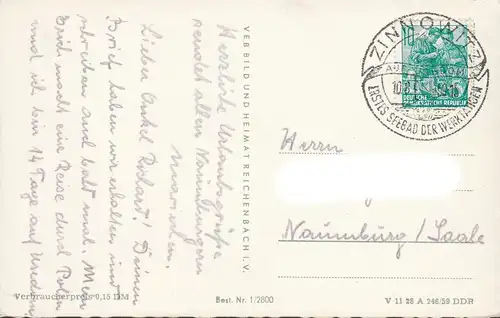 Herzliche Urlaubsgrüße
sendet allen Naumburgern
Lieber Onkel Richard! Deinen
Brief haben wir erhalten und
schreiben auch bald mal. Mein
Brich macht eine Reise durch Polen
und ich bin 14 Tage auf Usedom
VEB BILD UND HEIMAT REICHENBACH I. V.
ZINNOWITZ
AUF USEDOM
ERSTES SEEBAD DER WERKTÄTIGEN
10
DEUTSCHE
DEMOKRATISCHE REPUBLIK
Herrn
Naumburg/Saale
Verbraucherpreis 0,15 DM
Best. Nr. 1/2800
V 11 28 A 246/59 DDR